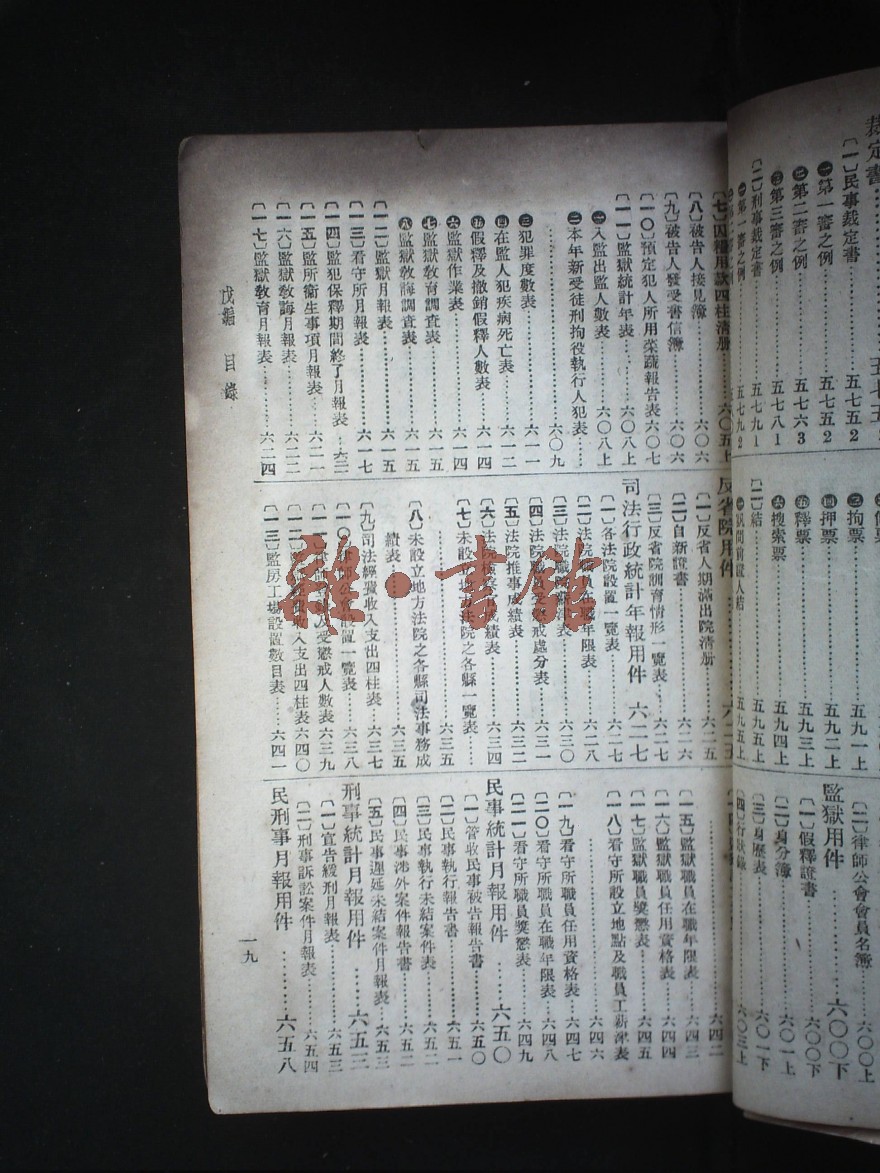 裁定書
〔一〕民事裁定書……五七五2
㊀第一審之例……五七五2
㊁第二審之例……五七六3
㊂第三審之例……五七八1
〔二〕刑事裁定書……五七九1
㊀第一審之例……五七九2
㊁拘票……五九一上
㊃押票……五九二上
㊄釋票……五九三上
㊅搜索票……五九四上
〔二〕結……五九五上
〔二〕律師公會會員名簿……六〇〇上
監獄用件……六〇〇下
〔一〕假釋證書……六〇〇下
〔二〕身分簿……六〇一上
〔三〕身歷表……六〇一下
〔四〕行狀錄……六〇三上
〔七〕囚糧用款四柱清册……六〇五上
〔八〕被告人接見簿……六〇六
〔九〕被告人發受書信簿……六〇六
〔一〇〕預定犯人所用菜蔬報告表六〇七
〔一一〕監獄統計年表……六〇八上
㊀入監出監人數表……六〇八上
㊁本年新受徒刑拘役執行人犯表……
……六〇九
㊂犯罪度數表……六一一
㊃在監人犯疾病死亡表……六一二
㊄假釋及撤銷假釋人數表……六一四
㊅監獄作業表……六一四
㊆監獄敎育調查表……六一五
㊇監獄敎誨調查表……六一五
〔一二〕監獄月報表……六一五
〔一三〕看守所月報表……六一七
〔一四〕監犯保釋期間終了月報表……六二〇
〔一五〕監所衞生事項月報表……六二一
〔一六〕監獄敎誨月報表……六二二
〔一七〕監獄敎育月報表……六二四
反省院用件……六二五
〔一〕反省人期滿出院清册……六二五
〔二〕自新證書……六二六
〔三〕反省院訓育情形一覽表……六二七
司法行政統計年報用件 六二七
〔一〕各法院設置一覽表……六二七
〔二〕法院職員在職年限表……六二八
〔三〕法院職員獎懲表……六三〇
〔四〕法院職員受懲戒處分表……六三一
〔五〕法院推事成績表……六三二
〔六〕法院檢察官成績表……六三四
〔七〕未設立地方法院之各縣一覽表……
……六三五
〔八〕未設立地方法院之各縣司法事務成
績表……六三五
〔九〕司法經費收入支出四柱表……六三七
〔一〇〕律師公會設置一覽表……六三八
受懲戒人數表……六三九
收入支出四柱表……六四〇
〔一三〕監房工場設置數目表……六四一
……六四二
〔一五〕監獄職員在職年限表……六四三
〔一六〕監獄職員任用資格表……六四四
〔一七〕監獄職員獎懲表……六四五
〔一八〕看守所設立地點及職員工薪津表
……六四六
〔一九〕看守所職員任用資格表……六四七
〔二〇〕看守所職員在職年限表……六四八
〔二一〕看守所職員獎懲表……六四九
民事統計月報用件……六五〇
〔一〕管收民事被告報告書……六五〇
〔二〕民事執行報告書……六五一
〔三〕民事執行未結案件表……六五二
〔四〕民事涉外案件報告書……六五二
〔五〕民事遲延未結案件月報表……六五三
刑事統計月報用件……六五三
〔一〕宣告緩刑月報表……六五三
〔二〕刑事訴訟案件月報表……六五四
民刑事月報用件……六五八
戊編 目錄
一九
雜·書館